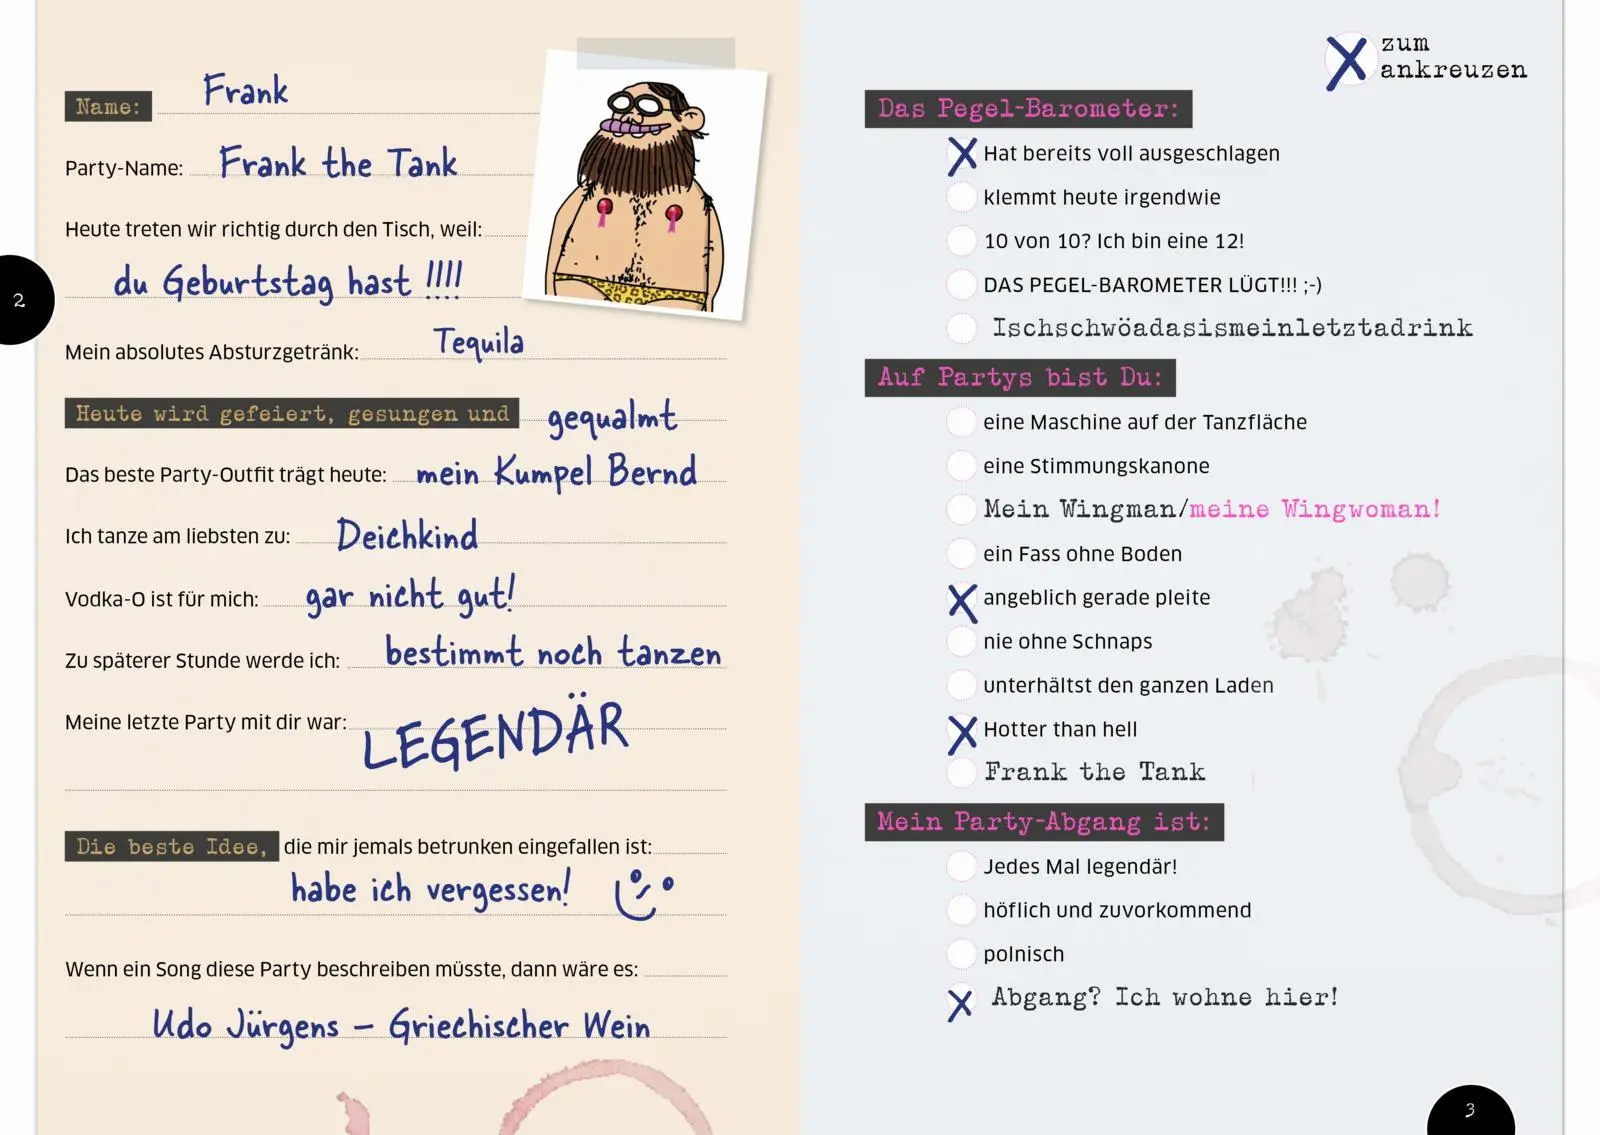 Name: Frank
Party-Name: Frank the Tank
Heute treten wir richtig durch den Tisch, weil:
du Geburtstag hast !!!!
2
Mein absolutes Absturzgetränk: Tequila
Heute wird gefeiert, gesungen und gequalmt
Das beste Party-Outfit trägt heute: mein Kumpel Bernd
Ich tanze am liebsten zu: Deichkind
Vodka-O ist für mich: gar nicht gut!
Zu späterer Stunde werde ich: bestimmt noch tanzen
Meine letzte Party mit dir war: LEGENDÄR
Die beste Idee, die mir jemals betrunken eingefallen ist:
habe ich vergessen!
Wenn ein Song diese Party beschreiben müsste, dann wäre es:
Udo Jürgens – Griechischer Wein
X zum
ankreuzen
Das Pegel-Barometer:
X Hat bereits voll ausgeschlagen
klemmt heute irgendwie
10 von 10? Ich bin eine 12!
DAS PEGEL-BAROMETER LÜGT!!! ;-)
Ischschwöadasismeinletztadrink
Auf Partys bist Du:
eine Maschine auf der Tanzfläche
eine Stimmungskanone
Mein Wingman/meine Wingwoman!
ein Fass ohne Boden
X angeblich gerade pleite
nie ohne Schnaps
unterhältst den ganzen Laden
X Hotter than hell
Frank the Tank
Mein Party-Abgang ist:
Jedes Mal legendär!
höflich und zuvorkommend
polnisch
X Abgang? Ich wohne hier!
3